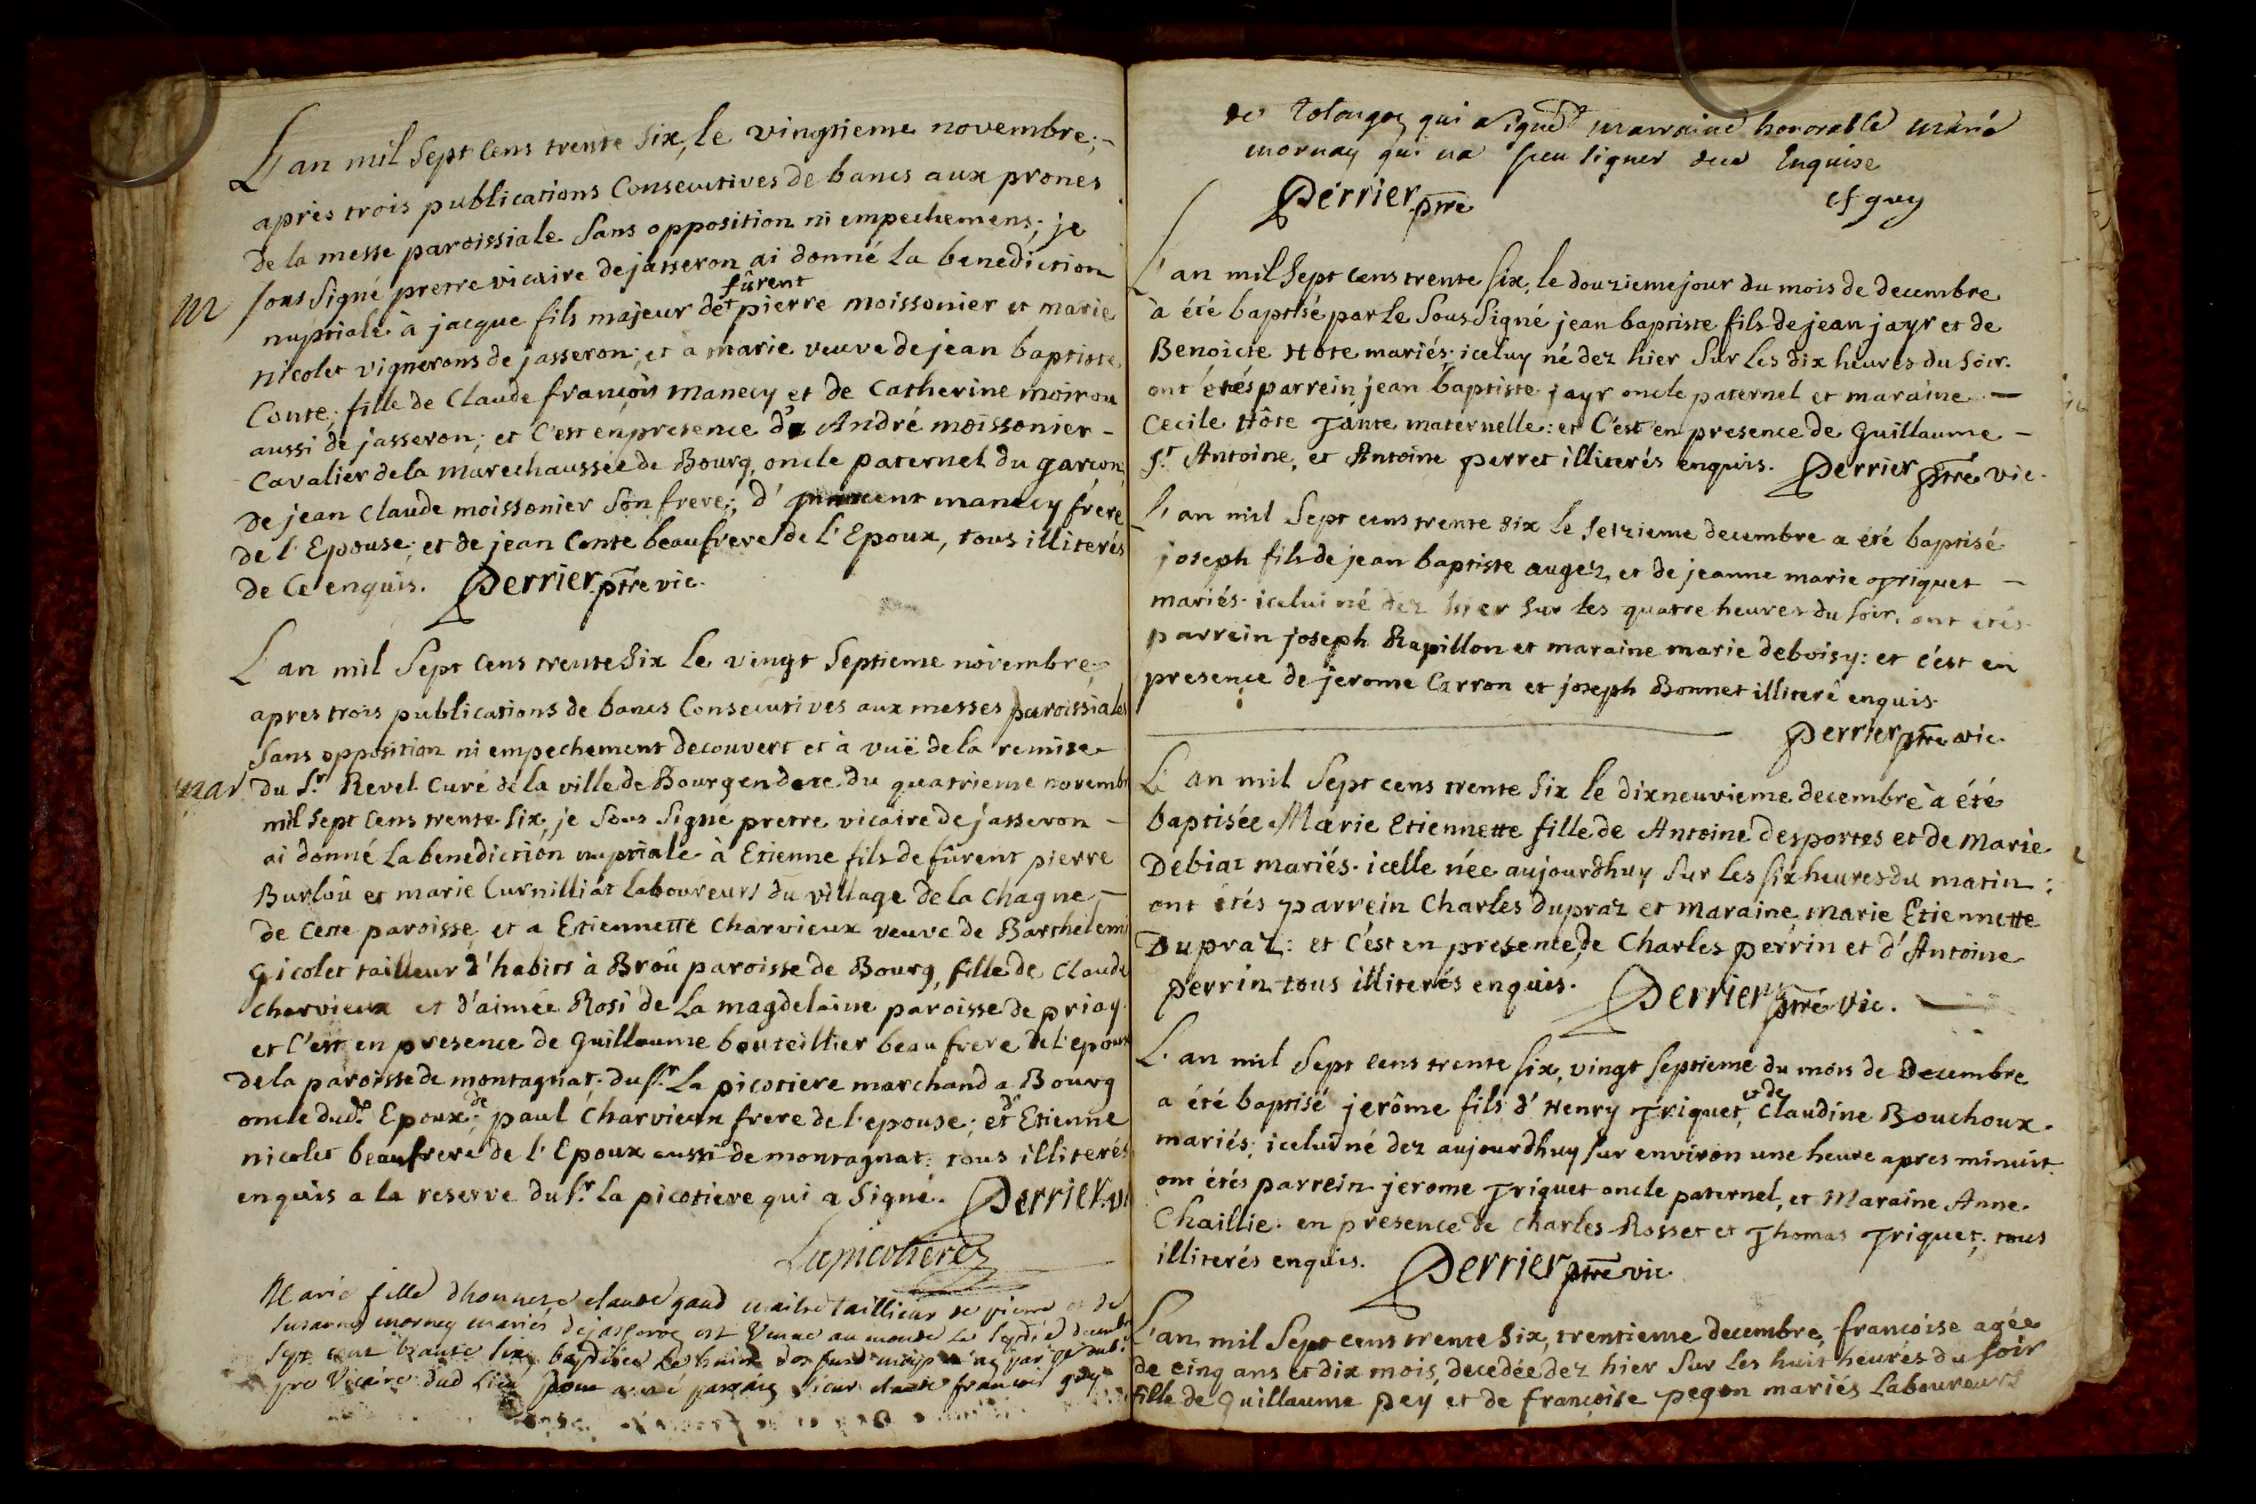 L'an mil Sept Cens trente Six, le vingtieme novembre;
après trois publications Consecutives de bancs aux prones
de la messe paroissiale Sans opposition ni empechemens; je
Sous Signé pretre vicaire de jasseron ai donné la benediction
fûrent
nuptiale à jacque fils majeur de pierre moissonier et marie
m
nicolet vignerons de jasseron; et à marie veuve de jean baptiste
Conte; fille de Claude françois manecy et de Catherine moirou
aussi de jasseron; et C'est en presence d' André moissonier
Cavalier de la marechaussée de Bourg, oncle paternel du garcon,
de jean Claude moissonier Son frere; d' manecy frere
de l'Epouse; et de jean Conte beaufrere de l'Epoux, tous illiterés
de Ce enquis. Perrier ptre vic.
L'an mil Sept Cens trente Six le vingt Septieme novembre;
apres trois publications de bancs Consecutives aux messes paroissiales
Sans opposition ni empechement decouvert et à vuë de la remise
mar
du Sr. Revel Curé de la ville de Bourg en date du quatrieme novemb
mil Sept Cens trente Six, je Sous Signé pretre vicaire de jasseron
ai donné la benediction nuptiale à Etienne fils de fûrent pierre
Burloû et marie Curnilliat laboureurs du village de la Chagne
de Cette paroisse et a Etiennette Charvieux veuve de Barthelemi
gicolet tailleur d'habits à Broû paroisse de Bourg, fille de Claude
Charvieux et d'aimée Rosi de La magdelaine paroisse de priay.
et C'est en presence de Guillaume bouteillier beau frere de l'epoux
de la paroisse de montagnat. du Sr. La picotiere marchand a Bourg
oncle dud. Epoux; de paul Charvieux frere de l'epouse; et d' Etienne
nicolet beaufrere de l'Epoux aussi de montagnat: tous illiterés
enquis a la reserve du Sr. la picotiere qui a Signé. Perrier vi
Lapicotiere
Marie fille dhonneste claude gaud maitre taillieur de pierre et de
Susanne mornay mariés de jasseron est Venue au monde le
Sept cent trante Six baptisée le huit par
pre Vicaire dud Lieu sieur claude francois guy
de qui a signé marraine honorable marie
mornay qui na sceu signer dece Enquise
Perrier ptre cf guy
L'an mil Sept Cens trente Six, le douzieme jour du mois de decembre
à été baptisé par le Sous Signé jean baptiste fils de jean jayr et de
Benoicte Hôte mariés; iceluy né dez hier Sur les dix heures du Soir.
ont étés parrein jean baptiste jayr oncle paternel et maraine
Cecile Hôte Tante maternelle: et C'est en presence de Guillaume
St. Antoine, et Antoine perret illiterés enquis. Perrier ptre vic.
L'an mil Sept cens trente Six le Seizieme decembre a été baptisé
joseph fils de jean baptiste augez, et de jeanne marie Triquet
mariés. icelui né dez hier Sur les quatre heures du Soir. ont étés
parrein joseph Rapillon et maraine marie deboisy: et c'est en
presence de jerome Carron et joseph Bonnet illiteré enquis.
Perrier ptre vic.
L'an mil Sept cens trente Six le dixneuvieme decembre à été
baptisée Marie Etiennette fille de Antoine desportes et de Marie
Debiat mariés. icelle née aujourdhuy Sur les Six heures du matin:
ont étés parrein Charles dupraz et maraine marie Etiennette
Dupraz: et C'est en presence de Charles perrin et d'Antoine
perrin tous illiterés enquis. Perrier ptre vic.
L'an mil Sept cens trente Six, vingt Septieme du mois de Decembre
a été baptisé jerôme fils d'Henry Triquet, et de Claudine Bouchoux
mariés; icelui né dez aujourdhuy Sur environ une heure apres minuit.
ont étés parrein jerome Triquet oncle paternel, et Maraine Anne
Chaillie. en presence de Charles Rosset et Thomas Triquet; tous
illiterés enquis. Perrier ptre vic
L'an mil Sept cens trente Six, trentieme decembre, francoise agée
de cinq ans et dix mois, decedée dez hier Sur les huit heures du Soir
fille de Guillaume pey et de françoise pegon mariés Laboureurs